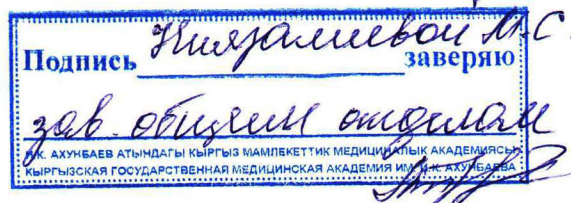 Подпись Ниязалиевой М.С.
заверяю
зав. общим отделом
И.К. АХУНБАЕВ АТЫНДАГЫ КЫРГЫЗ МАМЛЕКЕТТИК МЕДИЦИНАЛЫК АКАДЕМИЯСЫ
КЫРГЫЗСКАЯ ГОСУДАРСТВЕННАЯ МЕДИЦИНСКАЯ АКАДЕМИЯ ИМ. И.К. АХУНБАЕВА